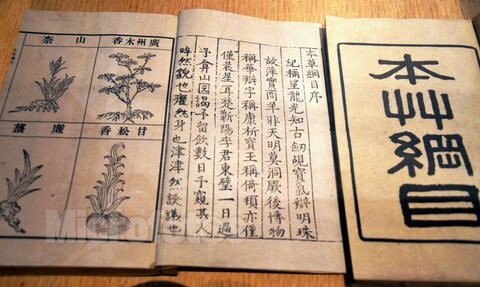 本艸綱目
本草綱目序
紀稱望龍光知古劒覘寶氣辯明珠
故萍實商羊非天明莫洞厥後博物
稱華辯字稱康析寶玉稱倚頓亦僅
僅晨星耳楚蘄陽李君東璧一日過
予弇山園謁予留飲數日予窺其人
睟然貌也癯然身也津津然談議也
廣州木香
山柰
甘松香
廉薑